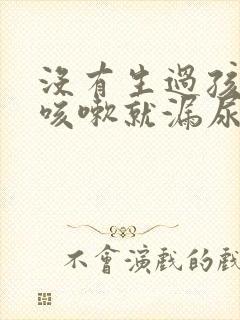 沒有生過孩
咳嗽就漏尿
不會演戲的戲